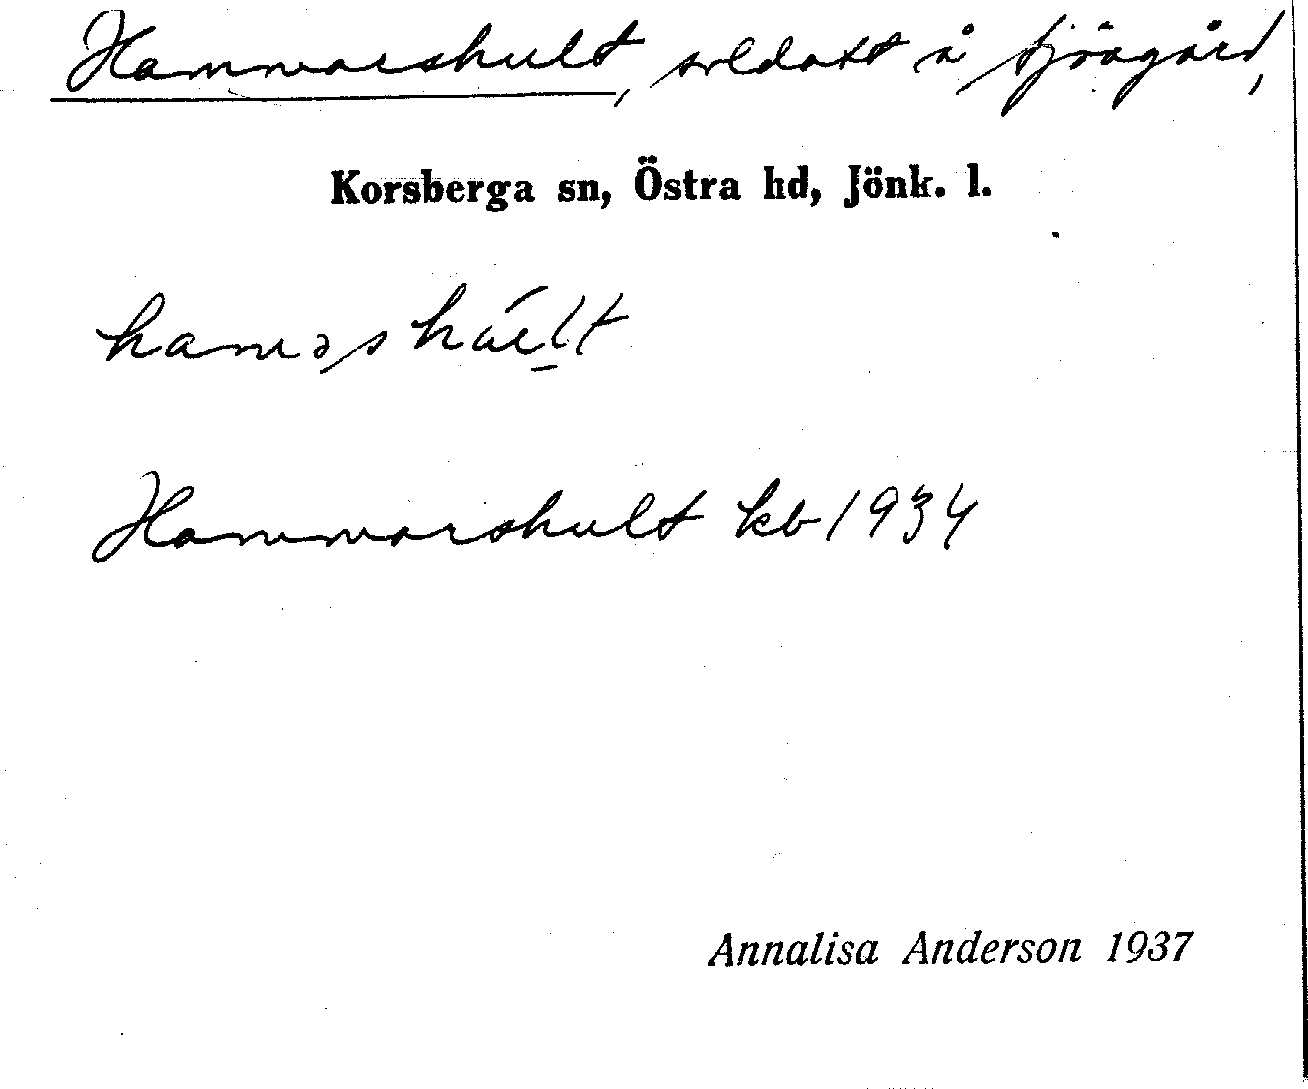 Hammarshult, soldatt å Sjöagård,
Korsberga sn, Östra hd, Jönk. l.
Hammarshult kb 1934
Annalisa Anderson 1937